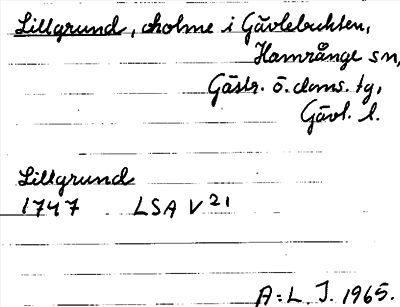 Lillgrund, holme i Gävlebukten,
Hamrånge sn,
Gästr. ö. doms. tg,
Gävl. l.
Lillgrund
1747 LSA V21
A:L. J. 1965.